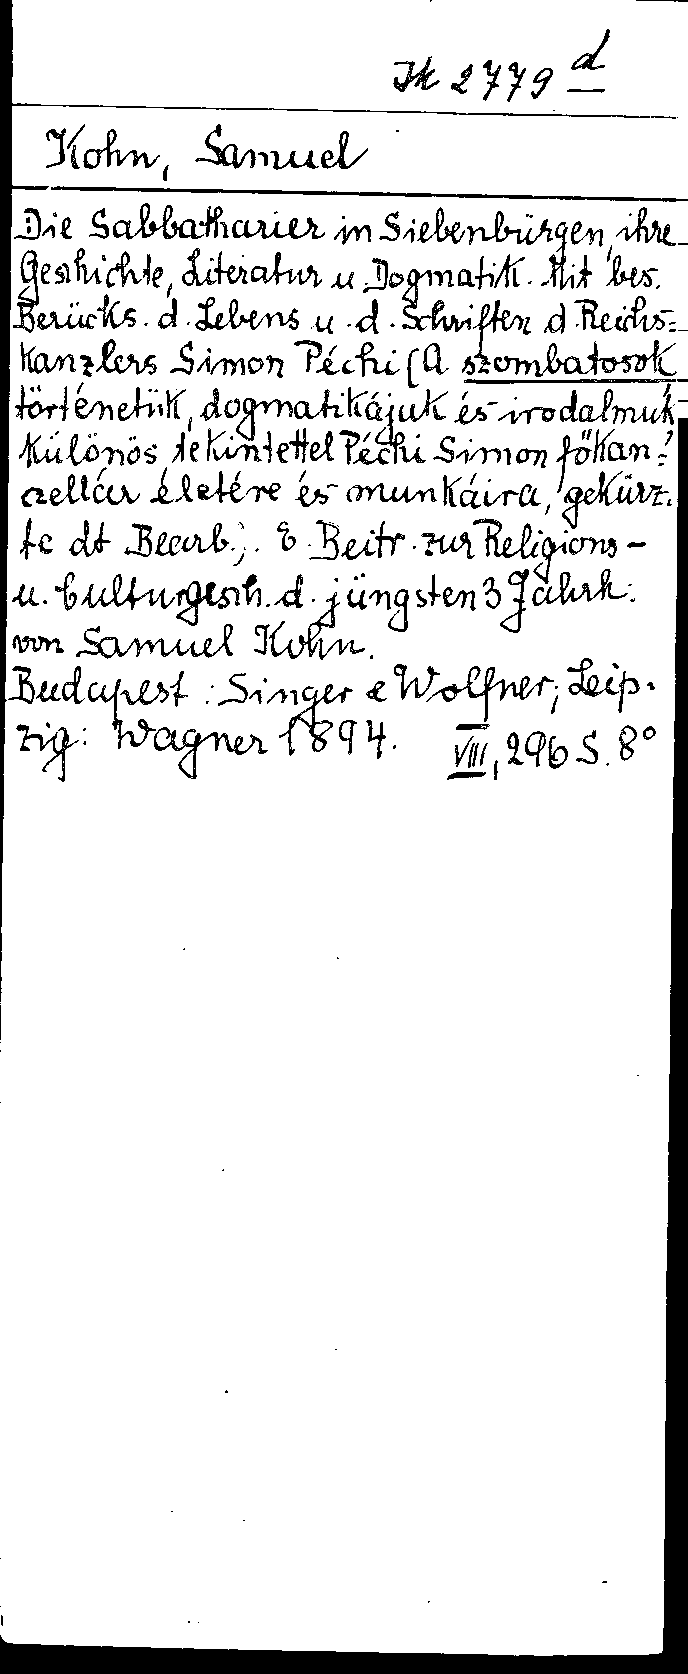 Jk 2779 d
Kohn, Samuel
Die Sabbatharier in Siebenbürgen, ihre
Geschichte, Literatur u Dogmatik. Mit bes.
Berücks. d. Lebens u. d. Schriften d. Reichs=
kanzlers Simon Péchi (A szombatosok
történetük, dogmatikájuk és irodalmuk
különös tekintettel Péchi Simon főkan=
czellár életére és munkáira, gekürz.
te dt Bearb.). E. Beitr. zur Religions-
u. Culturgesch. d. jüngsten 3 Jahrh.
von Samuel Kohn.
Budapest: Singer & Wolfner; Leip.
zig: Wagner 1894. VIII, 296 S. 8°